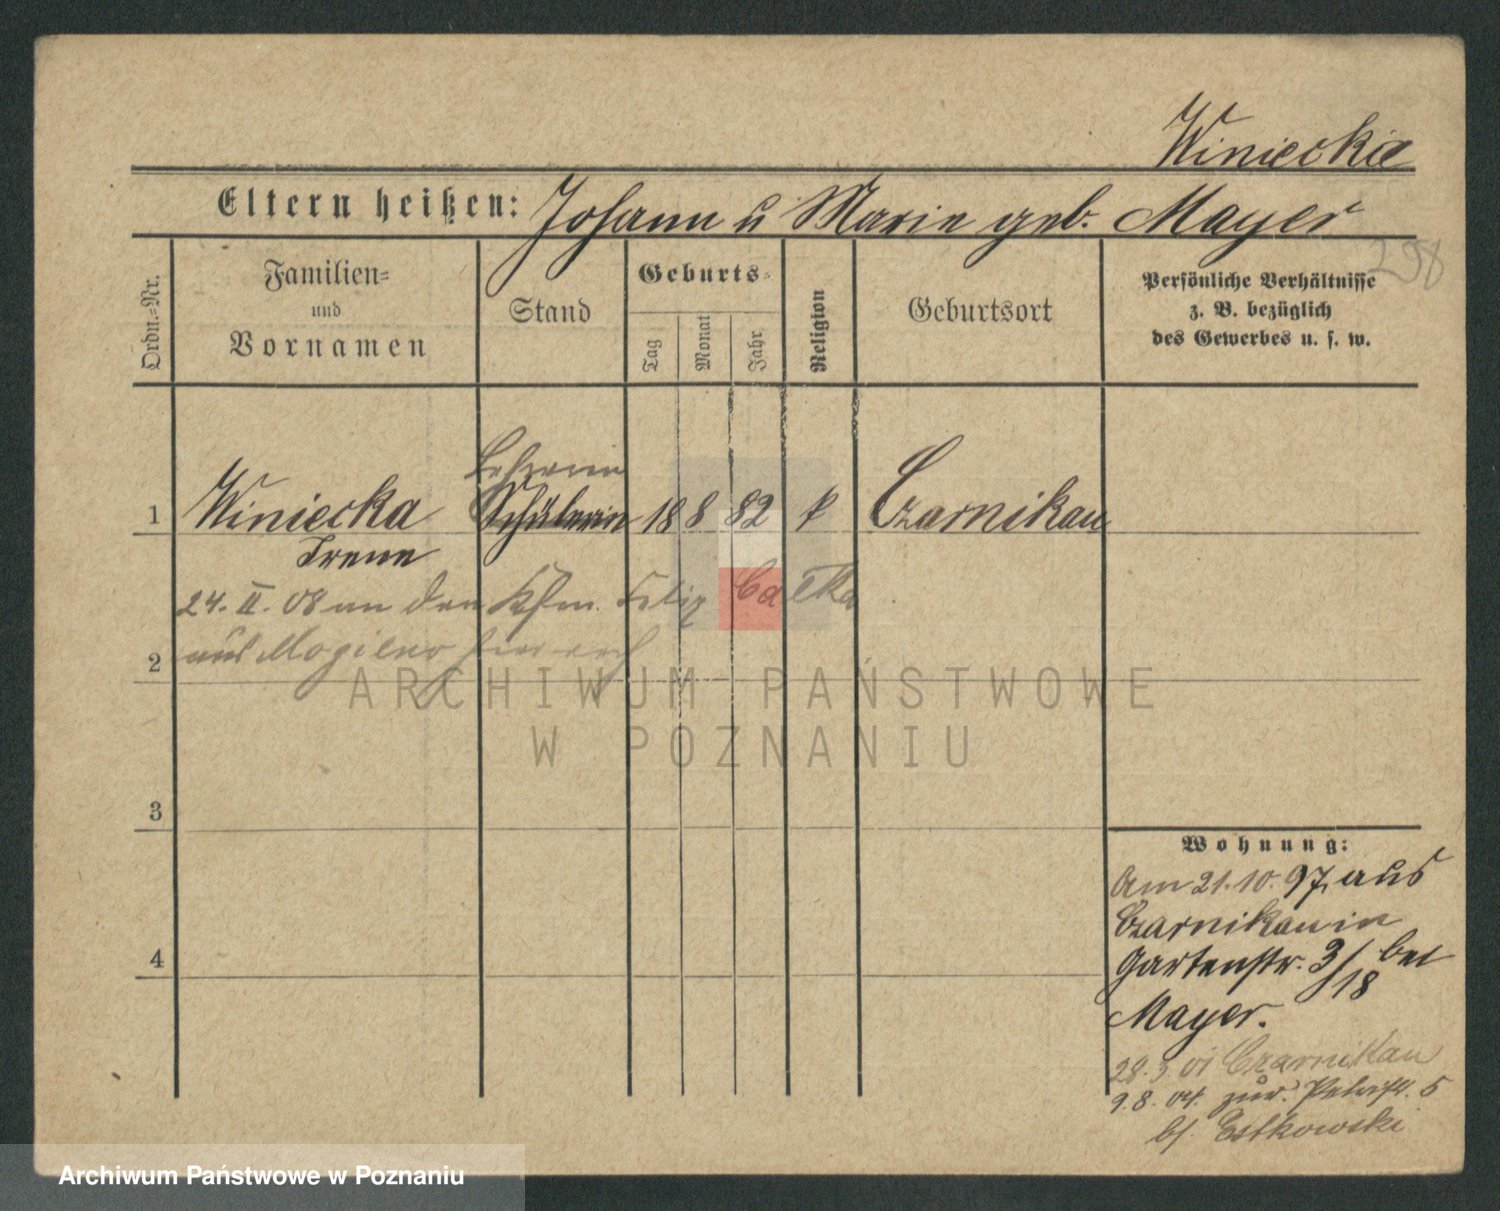 Winiecka
Eltern heißen: Johann u Marie geb. Mayer
298
Ordn.=Nr.
Familien=
und
Vornamen
Stand
Geburts=
Tag
Monat
Jahr
Religion
Geburtsort
Persönliche Verhältnisse
z. B. bezüglich
des Gewerbes u. s. w.
Lehrerin
1 Winiecka Schülerin 18 8 82 k Czarnikau
Irene
24. II. 08 an den Kfm. Felix
aus Mogilno
2
3
4
Wohnung:
Am 21.10.97, aus
Czarnikau in
Gartenstr. 3/18 bei
Mayer.
28.3.01 Czarnikau
9.8.04. zur. Petristr. 5
b/. Estkowski
ARCHIWUM PAŃSTWOWE
W POZNANIU
Archiwum Państwowe w Poznaniu